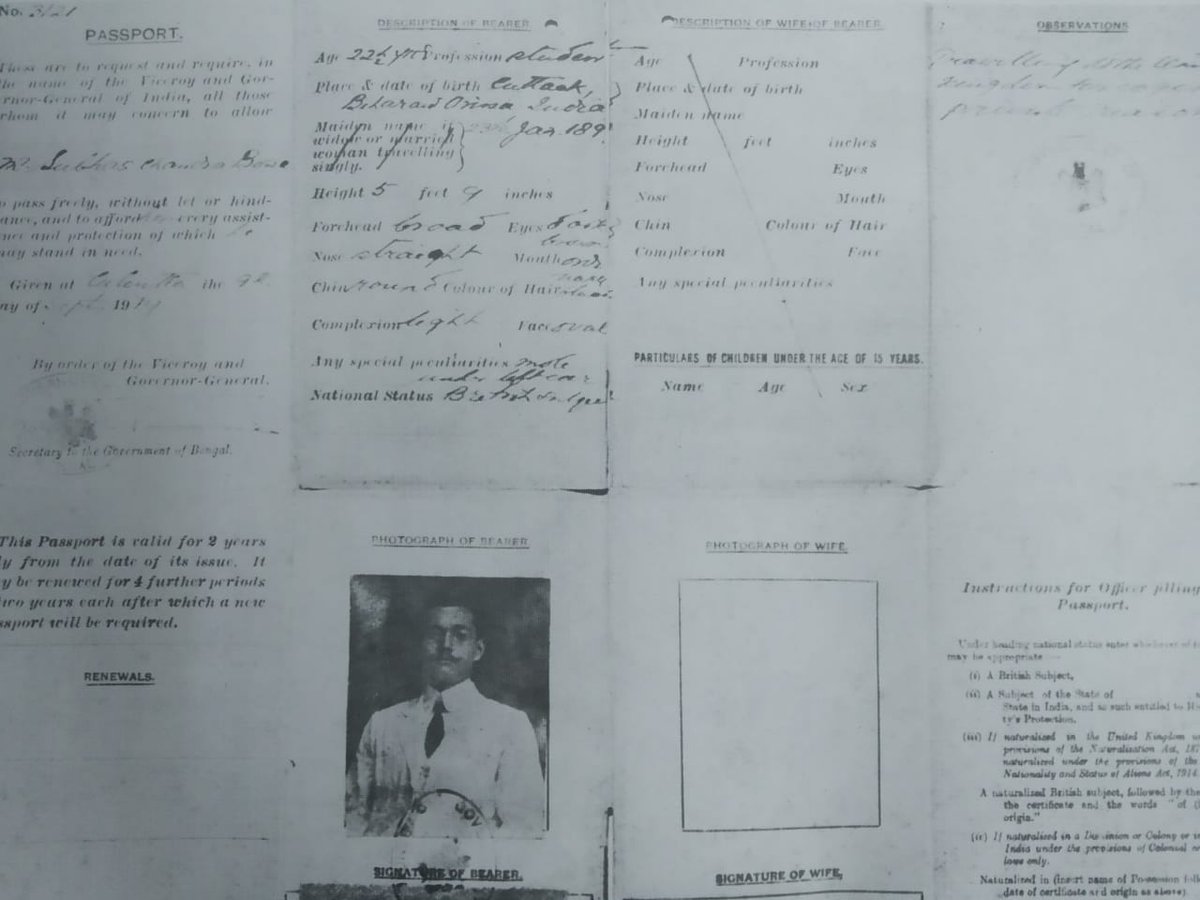 No. 3121
PASSPORT.
These are to request and require, in
the name of the Viceroy and Gov-
ernor-General of India, all those
whom it may concern to allow
Mr Subhas Chandra Bose
to pass freely, without let or hind-
ance, and to afford every assist-
nce and protection of which he
may stand in need.
Given at Calcutta the 9th
ay of Sept. 1919
By order of the Viceroy and
Governor-General.
Secretary to the Government of Bengal.
DESCRIPTION OF BEARER.
Age 22½ yrs Profession student
Place & date of birth Cuttack,
Behar and Orissa India
Jan 189
Maiden name if
widow or married
woman travelling
singly.
Height 5 feet 9 inches
Forehead broad Eyes dark
brown
Nose straight Mouth ordi
nary
Chin round Colour of Hair
Complexion light Face oval
Any special peculiarities mole
under left ear
National Status British subject
DESCRIPTION OF WIFE OF BEARER.
Age Profession
Place & date of birth
Maiden name
Height feet inches
Forehead Eyes
Nose Mouth
Chin Colour of Hair
Complexion Face
Any special peculiarities
PARTICULARS OF CHILDREN UNDER THE AGE OF 15 YEARS.
Name Age Sex
OBSERVATIONS
Travelling to the
This Passport is valid for 2 years
ly from the date of its issue. It
y be renewed for 4 further periods
two years each after which a new
ssport will be required.
RENEWALS.
PHOTOGRAPH OF BEARER.
GOV
SIGNATURE OF BEARER.
PHOTOGRAPH OF WIFE.
SIGNATURE OF WIFE,
Instructions for Officer filling
Passport.
Under heading national status enter whichever of
may be appropriate —
(i) A British Subject,
(ii) A Subject of the State of
State in India, and as such entitled to
ty's Protection.
(iii) If naturalized in the United Kingdom
provisions of the Naturalization Act, 187
naturalized under the provisions of the
Nationality and Status of Aliens Act, 1914
A naturalized British subject, followed by the
the certificate and the words "of
origin."
(iv) If naturalized in a Dominion or Colony or
India under the provisions of Colonial
laws only.
Naturalized in (insert name of Possession
date of certificate and origin as above).